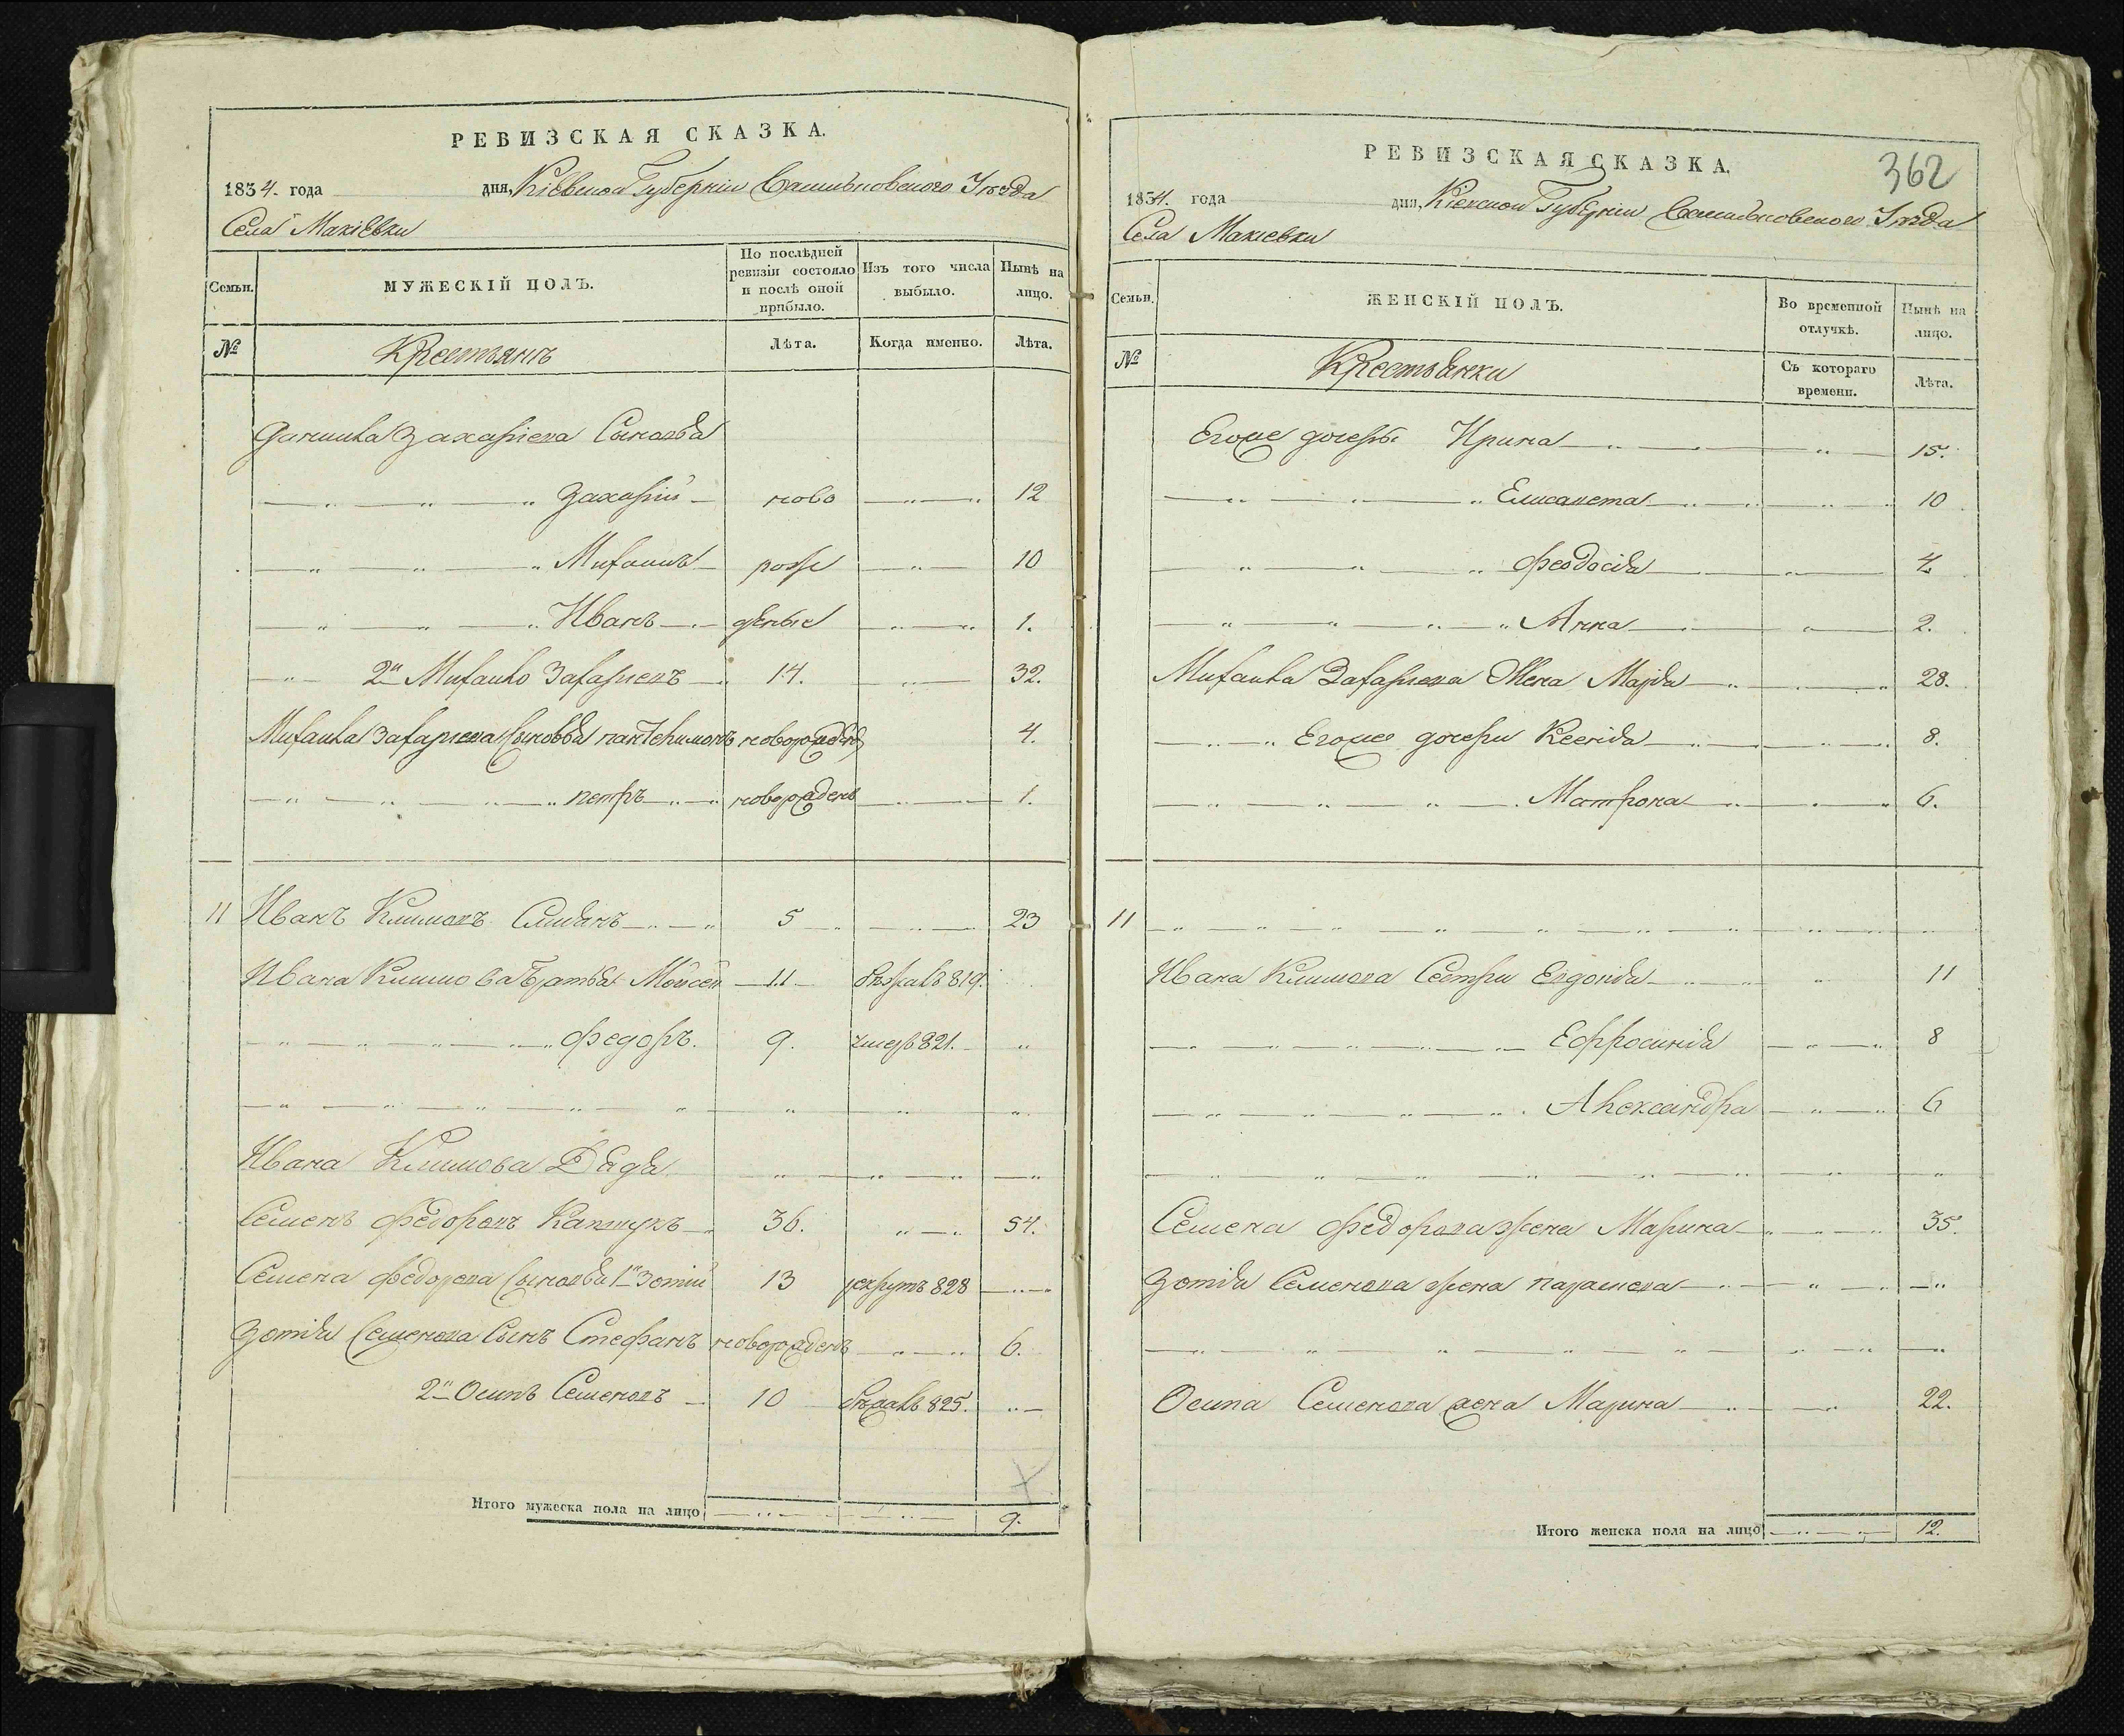 РЕВИЗСКАЯ СКАЗКА.
1834. года дня, Кіевской Губерніи Васильковского Уезда
Села Макіевки
Семьи.
МУЖЕСКІЙ ПОЛЪ.
По послѣдней ревизіи состояло и послѣ оной прибыло.
Изъ того числа выбыло.
Нынѣ на лицо.
№
Крестьянъ
Лѣта.
Когда именно.
Лѣта.
Данила Захариева Сыновья
Захарий ново 12
Михаилъ рожде 10
Иванъ денные 1.
2й Михайло Захариевъ 14. 32.
Михаила Захариева Сыновья пантелимонъ новорожденъ 4.
петръ новорожденъ 1.
11 Иванъ Климовъ 5 23
Ивана Климова братья Мойсей 11 бежалъ 819.
федоръ. 9. умеръ 821.
Ивана Климова Дядя
Семенъ федоровъ Капшукъ 36. 54.
Семена федорова Сыновья 1й Зотий 13 рекрутъ 828
Зотия Семенова Сынъ Стефанъ новорожденъ 6.
2й Осипъ Семеновъ 10 бежалъ 825.
Итого мужеска пола на лицо 9.
РЕВИЗСКАЯ СКАЗКА.
362
1834. года дня, Кіевской Губерніи Васильковского Уезда
Села Макиевки
Семьи.
ЖЕНСКІЙ ПОЛЪ.
Во временной отлучкѣ.
Нынѣ на лицо.
№
Крестьянки
Съ котораго времени.
Лѣта.
Егоже дочеры Ирина 15.
Елисавета 10
феодосія 4
Анна 2.
Михаила Захариева Жена Марья 28.
Егоже дочери Ксенія 8.
Матрона 6.
11
Ивана Климова Сестры Евдокія 11
Ефросинія 8
Александра 6
Семена федорова жена Марина 35.
Зотія Семенова жена
Осипа Семенова жена Марина 22.
Итого женска пола на лицо 12.